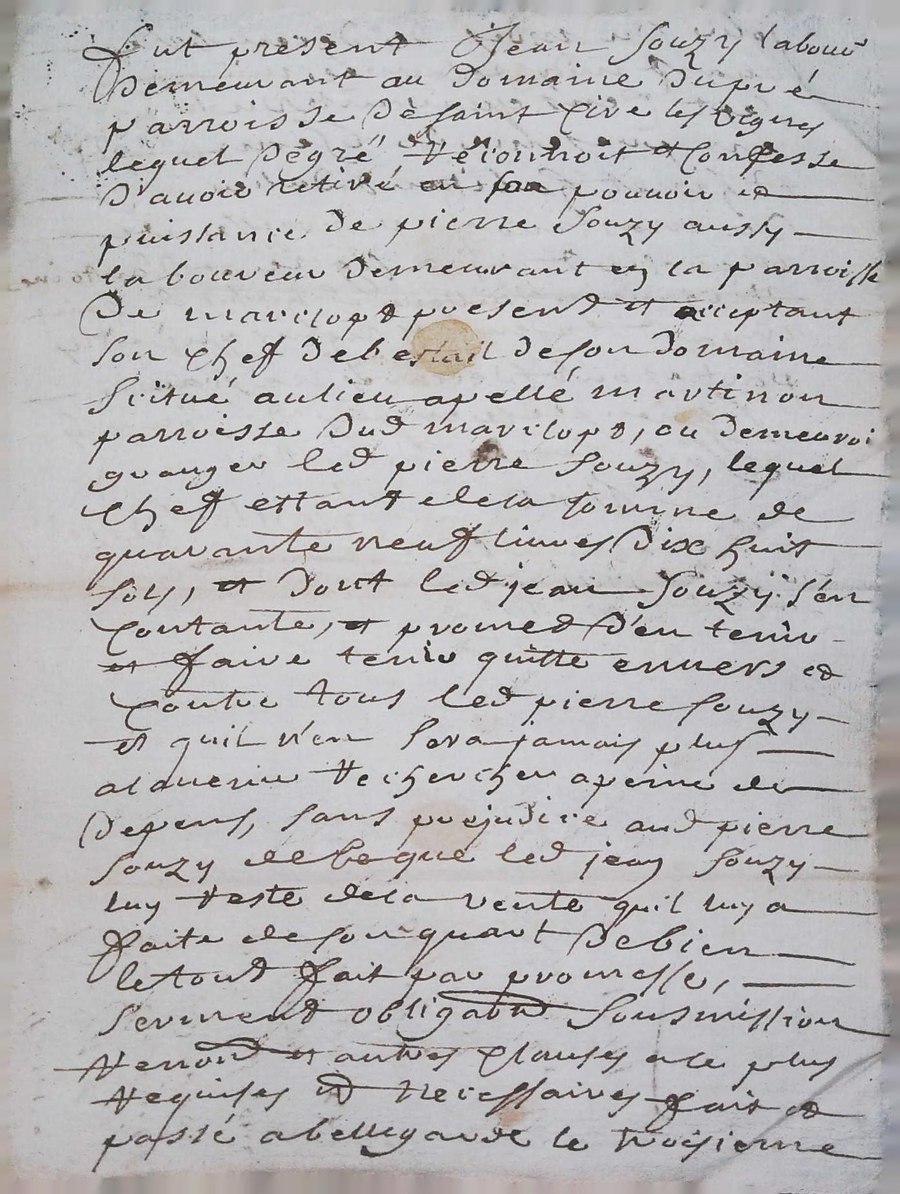 fut present Jean Souzy labour
demeurant au domaine dupré
parroisse de saint Cire les vignes
lequel de gré reconnoit et Confesse
d'avoir retiré en son pouvoir et
puissance de pierre Souzy aussy
laboureur demeurant en la parroisse
de marclopt present et acceptant
son chef de bestail de son domaine
scitué au lieu apellé martinon
parroisse dud marclopt, ou demeuroi
granger led pierre Souzy, lequel
Chef estant de la somme de
quarante neuf livres dix huit
sols, et dont led jean Souzy s'en
Contante, et promed d'en tenir
et faire tenir quitte envers et
Contre tous led pierre Souzy
et quil n'en sera jamais plus
aladvenir rechercher a peine de
depens, sans prejudice aud pierre
Souzy de ce que led jean Souzy
luy reste de la vente quil luy a
faite de son quart de bien
le tout fait par promesse,
serment obligaon sousmission
renon et autres Clauses a ce plus
requises et necessaires fait et
passé a bellegarde le troisieme